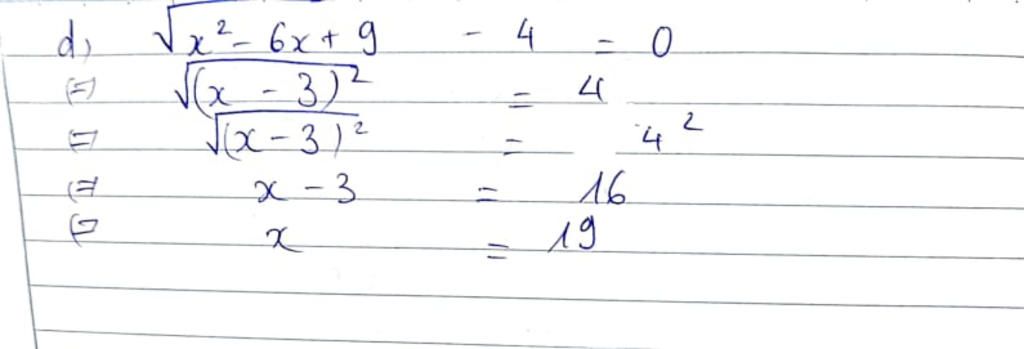 d, √x² - 6x + 9 - 4 = 0
(=) √(x - 3)² = 4
(=) √(x - 3)² = 4²
(=) x - 3 = 16
(=) x = 19